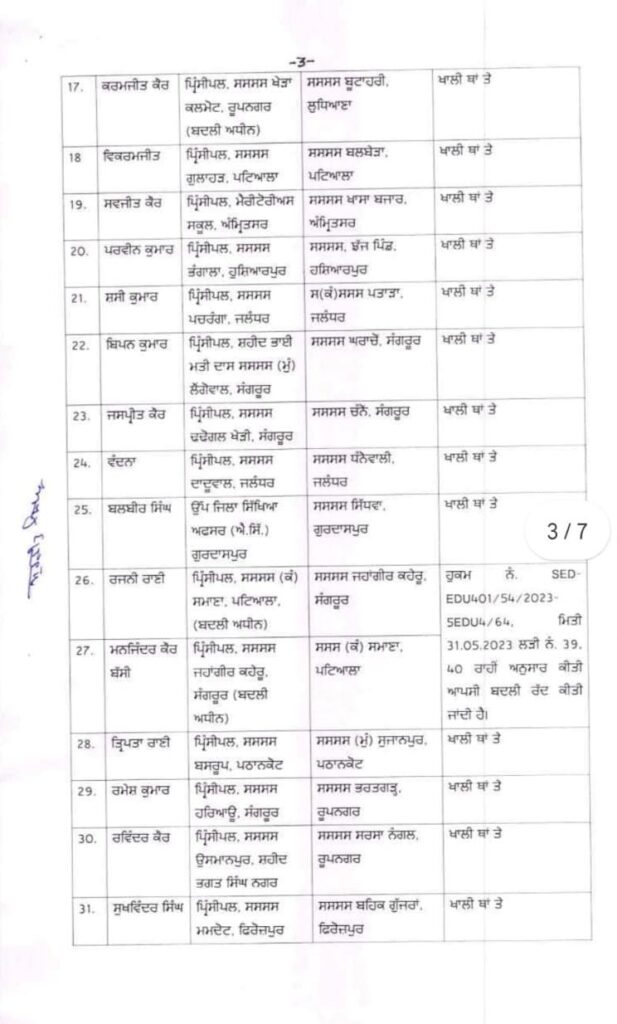 -3-
17. ਕਰਮਜੀਤ ਕੌਰ ਪ੍ਰਿੰਸੀਪਲ, ਸਸਸਸ ਖੇੜਾ ਸਸਸਸ ਬੂਟਾਹਰੀ, ਖਾਲੀ ਥਾਂ ਤੇ
ਕਲਮੋਟ, ਰੂਪਨਗਰ ਲੁਧਿਆਣਾ
(ਬਦਲੀ ਅਧੀਨ)
18 ਵਿਕਰਮਜੀਤ ਪ੍ਰਿੰਸੀਪਲ, ਸਸਸਸ ਸਸਸਸ ਬਲਬੇੜਾ, ਖਾਲੀ ਥਾਂ ਤੇ
ਗੁਲਾਹੜ, ਪਟਿਆਲਾ ਪਟਿਆਲਾ
19. ਸਵਜੀਤ ਕੌਰ ਪ੍ਰਿੰਸੀਪਲ, ਮੈਰੀਟੋਰੀਅਸ ਸਸਸਸ ਖਾਸਾ ਬਜਾਰ, ਖਾਲੀ ਥਾਂ ਤੇ
ਸਕੂਲ, ਅੰਮ੍ਰਿਤਸਰ ਅੰਮ੍ਰਿਤਸਰ
20. ਪਰਵੀਨ ਕੁਮਾਰ ਪ੍ਰਿੰਸੀਪਲ, ਸਸਸਸ ਸਸਸਸ, ਝੱਜ ਪਿੰਡ, ਖਾਲੀ ਥਾਂ ਤੇ
ਭੰਗਾਲਾ, ਹੁਸ਼ਿਆਰਪੁਰ ਹਸ਼ਿਆਰਪੁਰ
21. ਸ਼ਸੀ ਕੁਮਾਰ ਪ੍ਰਿੰਸੀਪਲ, ਸਸਸਸ ਸ(ਕੰ)ਸਸਸ ਪਤਾੜਾ, ਖਾਲੀ ਥਾਂ ਤੇ
ਪਚਰੰਗਾ, ਜਲੰਧਰ ਜਲੰਧਰ
22. ਬਿਪਨ ਕੁਮਾਰ ਪ੍ਰਿੰਸੀਪਲ, ਸ਼ਹੀਦ ਭਾਈ ਸਸਸਸ ਘਰਾਚੋਂ, ਸੰਗਰੂਰ ਖਾਲੀ ਥਾਂ ਤੇ
ਮਤੀ ਦਾਸ ਸਸਸਸ (ਮੁੰ)
ਲੌਂਗੋਵਾਲ, ਸੰਗਰੂਰ
23. ਜਸਪ੍ਰੀਤ ਕੌਰ ਪ੍ਰਿੰਸੀਪਲ, ਸਸਸਸ ਸਸਸਸ ਚੰਨੋ, ਸੰਗਰੂਰ ਖਾਲੀ ਥਾਂ ਤੇ
ਢਢੋਗਲ ਖੇੜੀ, ਸੰਗਰੂਰ
24. ਵੰਦਨਾ ਪ੍ਰਿੰਸੀਪਲ, ਸਸਸਸ ਸਸਸਸ ਧੰਨੋਵਾਲੀ, ਖਾਲੀ ਥਾਂ ਤੇ
ਦਾਦੂਵਾਲ, ਜਲੰਧਰ ਜਲੰਧਰ
25. ਬਲਬੀਰ ਸਿੰਘ ਉੱਪ ਜਿਲਾ ਸਿੱਖਿਆ ਸਸਸਸ ਸਿੱਧਵਾ, ਖਾਲੀ ਥਾਂ ਤੇ
ਅਫਸਰ (ਐ.ਸਿੱ.) ਗੁਰਦਾਸਪੁਰ
ਗੁਰਦਾਸਪੁਰ
3 / 7
26. ਰਜਨੀ ਰਾਣੀ ਪ੍ਰਿੰਸੀਪਲ, ਸਸਸਸ (ਕੰ) ਸਸਸਸ ਜਹਾਂਗੀਰ ਕਹੇਰੂ, ਹੁਕਮ ਨੰ. SED-
ਸਮਾਣਾ, ਪਟਿਆਲਾ, ਸੰਗਰੂਰ EDU401/54/2023-
(ਬਦਲੀ ਅਧੀਨ) 5EDU4/64, ਮਿਤੀ
27. ਮਨਜਿੰਦਰ ਕੌਰ ਪ੍ਰਿੰਸੀਪਲ, ਸਸਸਸ ਸਸਸ (ਕੰ) ਸਮਾਣਾ, 31.05.2023 ਲੜੀ ਨੰ. 39,
ਬੱਸੀ ਜਹਾਂਗੀਰ ਕਹੇਰੂ, ਪਟਿਆਲਾ 40 ਰਾਹੀਂ ਅਨੁਸਾਰ ਕੀਤੀ
ਸੰਗਰੂਰ (ਬਦਲੀ ਆਪਸੀ ਬਦਲੀ ਰੱਦ ਕੀਤੀ
ਅਧੀਨ) ਜਾਂਦੀ ਹੈ।
28. ਤ੍ਰਿਪਤਾ ਰਾਣੀ ਪ੍ਰਿੰਸੀਪਲ, ਸਸਸਸ ਸਸਸਸ (ਮੁੰ) ਸੁਜਾਨਪੁਰ, ਖਾਲੀ ਥਾਂ ਤੇ
ਬਸਰੂਪ, ਪਠਾਨਕੋਟ ਪਠਾਨਕੋਟ
29. ਰਮੇਸ਼ ਕੁਮਾਰ ਪ੍ਰਿੰਸੀਪਲ, ਸਸਸਸ ਸਸਸਸ ਭਰਤਗੜ੍ਹ, ਖਾਲੀ ਥਾਂ ਤੇ
ਹਰਿਆਊ, ਸੰਗਰੂਰ ਰੂਪਨਗਰ
30. ਰਵਿੰਦਰ ਕੌਰ ਪ੍ਰਿੰਸੀਪਲ, ਸਸਸਸ ਸਸਸਸ ਸਰਸਾ ਨੰਗਲ, ਖਾਲੀ ਥਾਂ ਤੇ
ਉਸਮਾਨਪੁਰ, ਸ਼ਹੀਦ ਰੂਪਨਗਰ
ਭਗਤ ਸਿੰਘ ਨਗਰ
31. ਸੁਖਵਿੰਦਰ ਸਿੰਘ ਪ੍ਰਿੰਸੀਪਲ, ਸਸਸਸ ਸਸਸਸ ਬਹਿਕ ਗੁੱਜਰਾਂ, ਖਾਲੀ ਥਾਂ ਤੇ
ਮਮਦੋਟ, ਫਿਰੋਜ਼ਪੁਰ ਫਿਰੋਜ਼ਪੁਰ